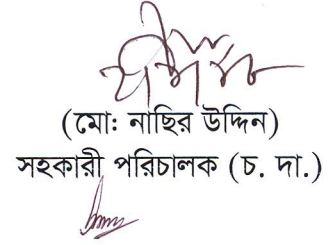 (মোঃ নাছির উদ্দিন)
সহকারী পরিচালক (চ. দা.)